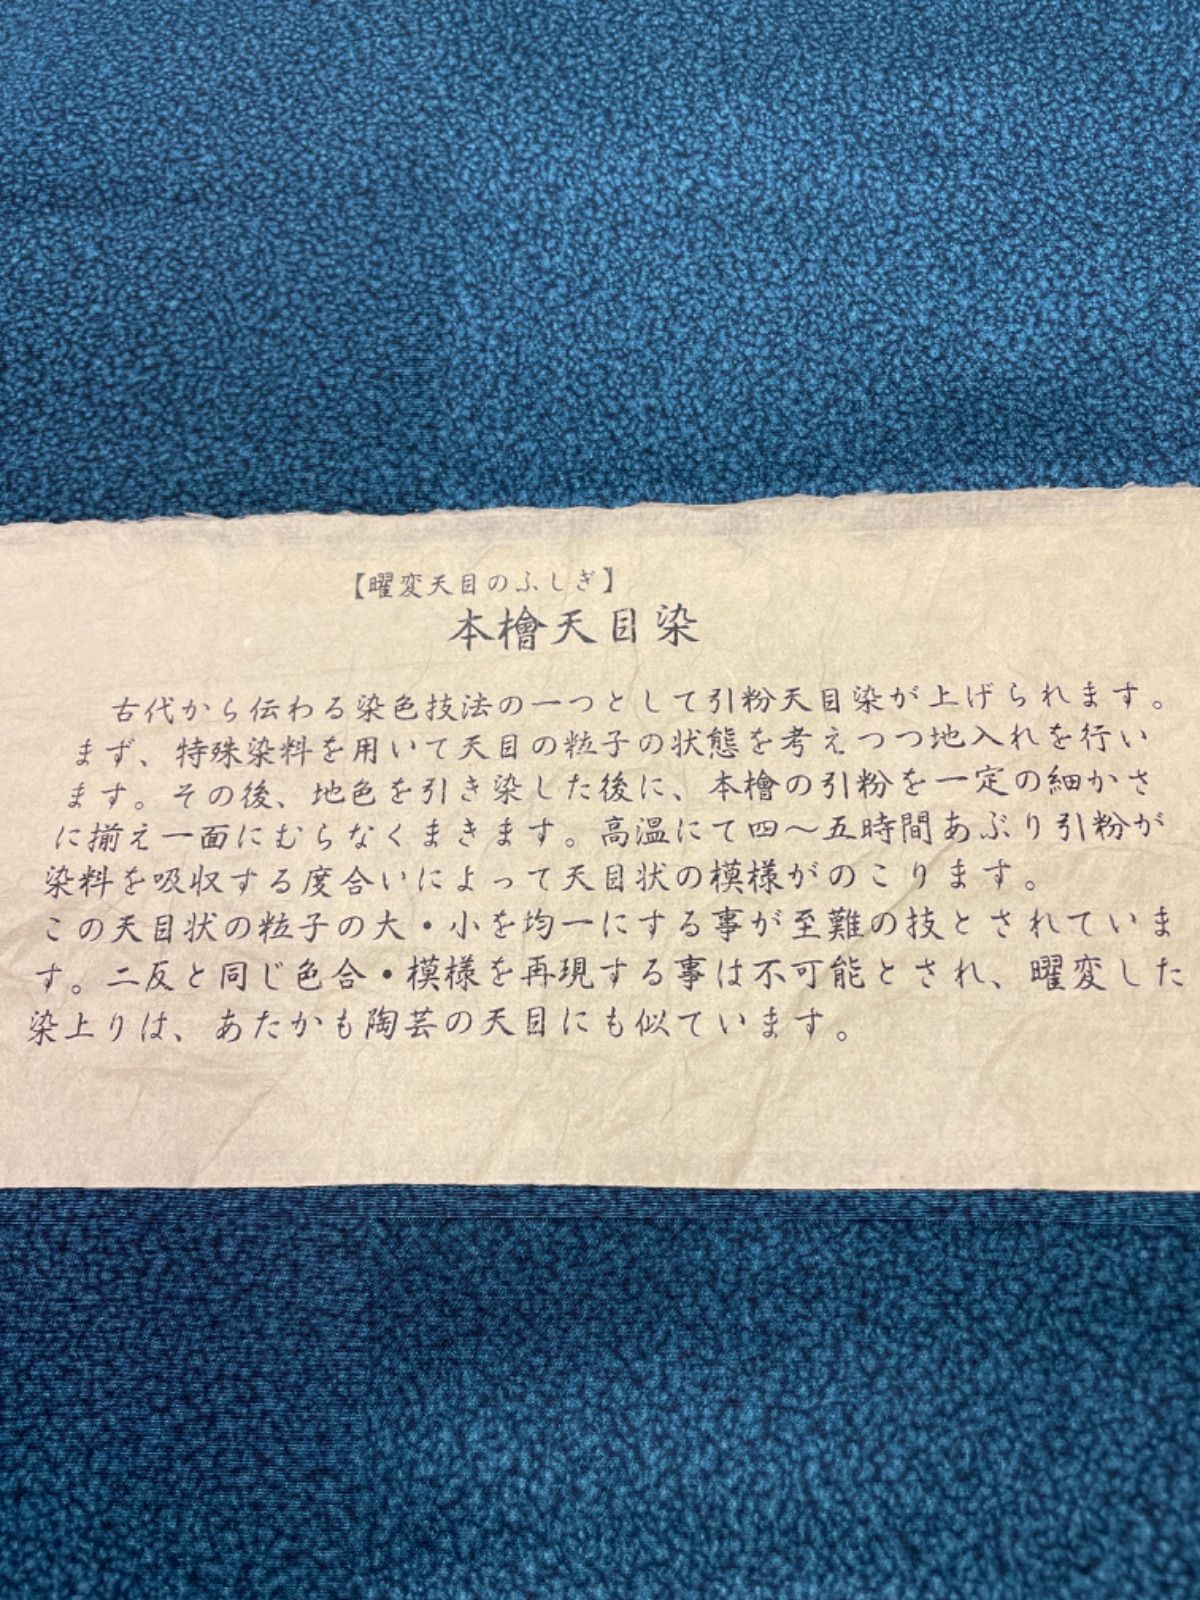 【曜変天目のふしぎ】
本檜天目染
古代から伝わる染色技法の一つとして引粉天目染が上げられます。
まず、特殊染料を用いて天目の粒子の状態を考えつつ地入れを行い
ます。その後、地色を引き染した後に、本檜の引粉を一定の細かさ
に揃え一面にむらなくまきます。高温にて四〜五時間あぶり引粉が
染料を吸収する度合いによって天目状の模様がのこります。
この天目状の粒子の大・小を均一にする事が至難の技とされていま
す。二反と同じ色合・模様を再現する事は不可能とされ、曜変した
染上りは、あたかも陶芸の天目にも似ています。